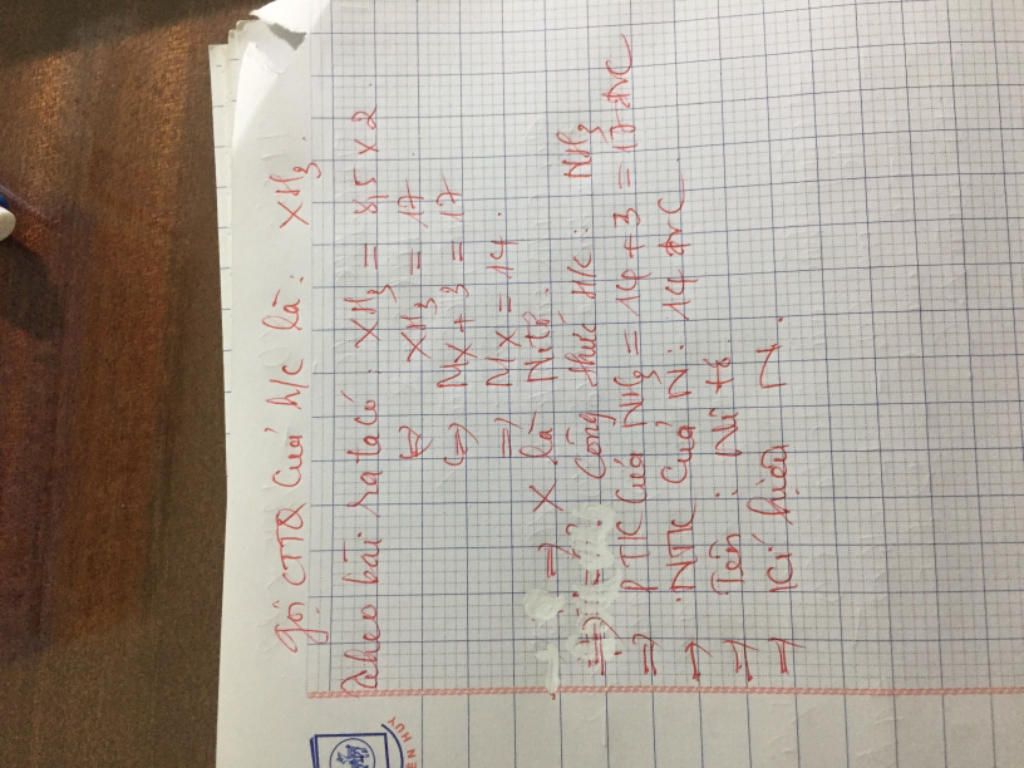 Gọi CTTQ của h/c là: XH3.
Theo bài ra ta có: XH3 = 8,5 x 2
⇔ XH3 = 17
⇔ MX + 3 = 17
⇒ MX = 14.
⇒ X là Nitơ.
⇒ Công thức H/C: NH3
⇒ PTK của NH3 = 14 + 3 = 17 đvC
→ NTK của N: 14 đvC
⇒ Tên: Nitơ
⇒ Kí hiệu N.
EN HUY